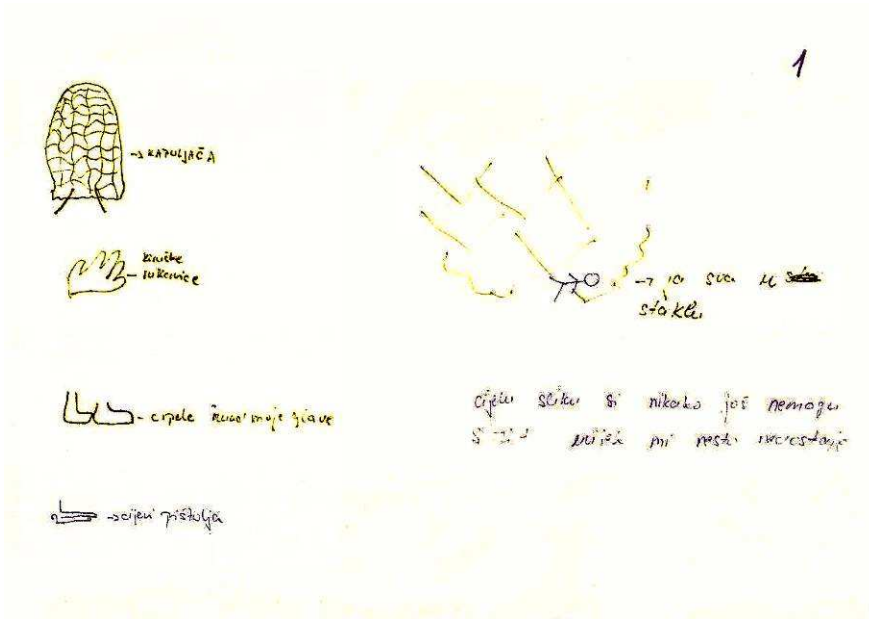 1
→ KAPULJAČA
kirurške
rukavice
- cipele moje glave
→ cijevi pištolja
→ ja sva u
staklu
cijelu sliku si nikako još nemogu
mi nešto nedostaje